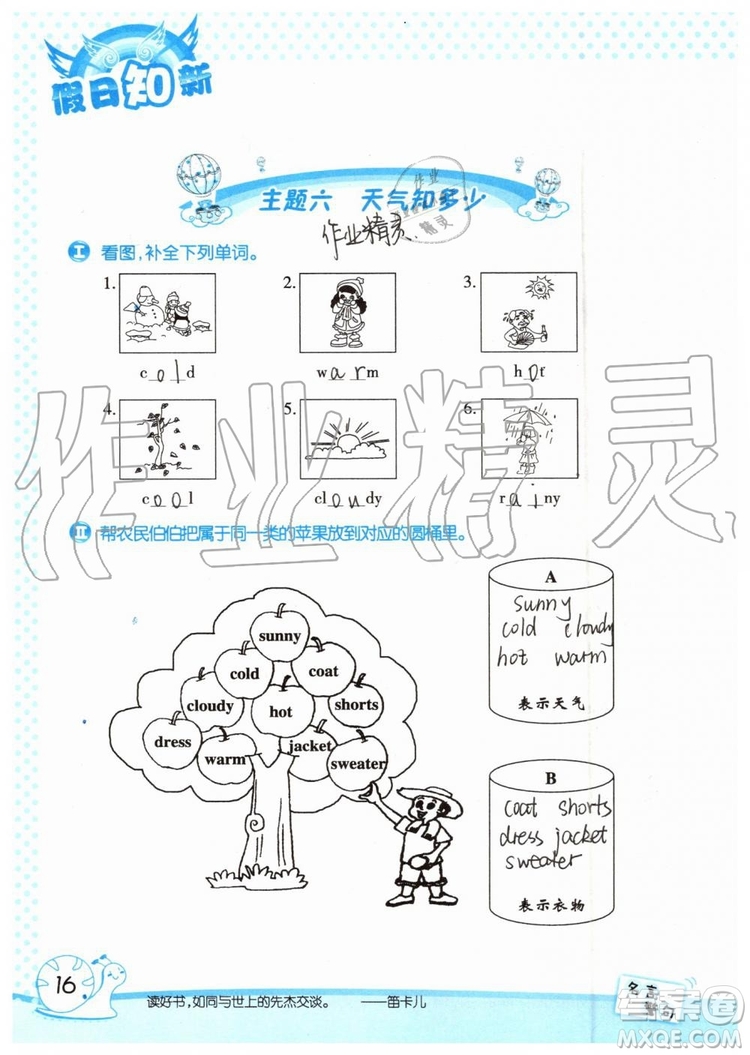 假日知新
主题六 天气知多少
作业精灵
作业
精灵
I 看图,补全下列单词。
1. 2. 3.
c o l d w a r m h o t
4. 5. 6.
c o o l cl o u dy r a i ny
作业精灵
II 帮农民伯伯把属于同一类的苹果放到对应的圆桶里。
A
sunny
cold cloudy
hot warm
表示天气
sunny
cold coat
cloudy hot shorts
dress warm jacket sweater
B
coat shorts
dress jacket
sweater
表示衣物
16
读好书,如同与世上的先杰交谈。 ——笛卡儿
名言警句
答案圈
MXQE.COM